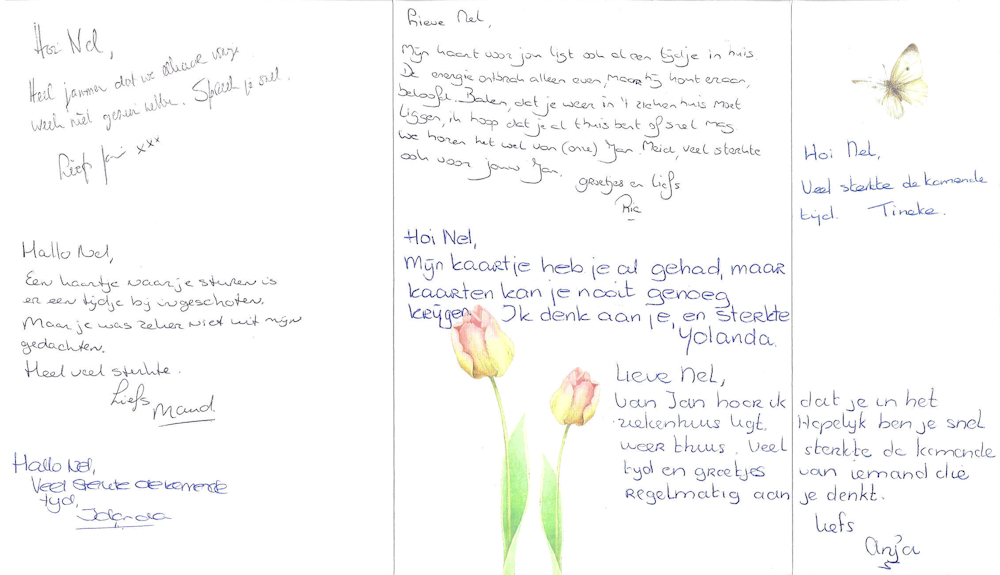 Hoi Nel,
Heel jammer dat we elkaar vorige
week niet gezien hebben. Spreek je snel.
Liefs xxx
Hallo Nel,
Een kaartje naar je sturen is
er een tijdje bij ingeschoten.
Maar je was zeker niet uit mijn
gedachten.
Heel veel sterkte.
Liefs
Maud
Hallo Nel,
Veel sterkte de komende
tijd,
Jolanda
Lieve Nel,
Mijn kaart voor jou ligt ook al een tijdje in huis
De energie ontbrak alleen even, maar hij komt eraan,
beloofd. Balen, dat je weer in 't ziekenhuis moet
liggen, ik hoop dat je al thuis bent of snel mag
We horen het wel van (onze) Jan. Meid, veel sterkte
ook voor jouw Jan.
groetjes en liefs
Ria
Hoi Nel,
Mijn kaartje heb je al gehad, maar
kaarten kan je nooit genoeg
krijgen. Ik denk aan je, en sterkte
Yolanda.
Hoi Nel,
Veel sterkte de komende
tijd. Tineke.
Lieve Nel,
van Jan hoor ik dat je in het
ziekenhuis ligt. Hopelijk ben je snel
weer thuis. Veel sterkte de komende
tijd en groetjes van iemand die
regelmatig aan je denkt.
Liefs
Anja